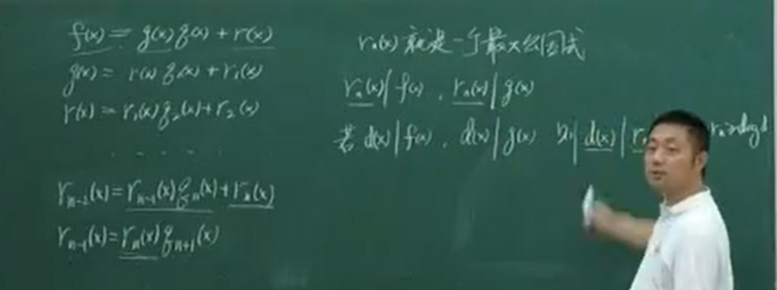 f(x) = g(x) q(x) + r(x)
g(x) = r(x) q₁(x) + r₁(x)
r(x) = r₁(x) q₂(x) + r₂(x)
· · · · ·
rₙ₋₂(x) = rₙ₋₁(x) qₙ(x) + rₙ(x)
rₙ₋₁(x) = rₙ(x) qₙ₊₁(x)
rₙ(x) 就是一个最大公因式
rₙ(x) | f(x) , rₙ(x) | g(x)
若 d(x) | f(x) , d(x) | g(x) 则 d(x) |